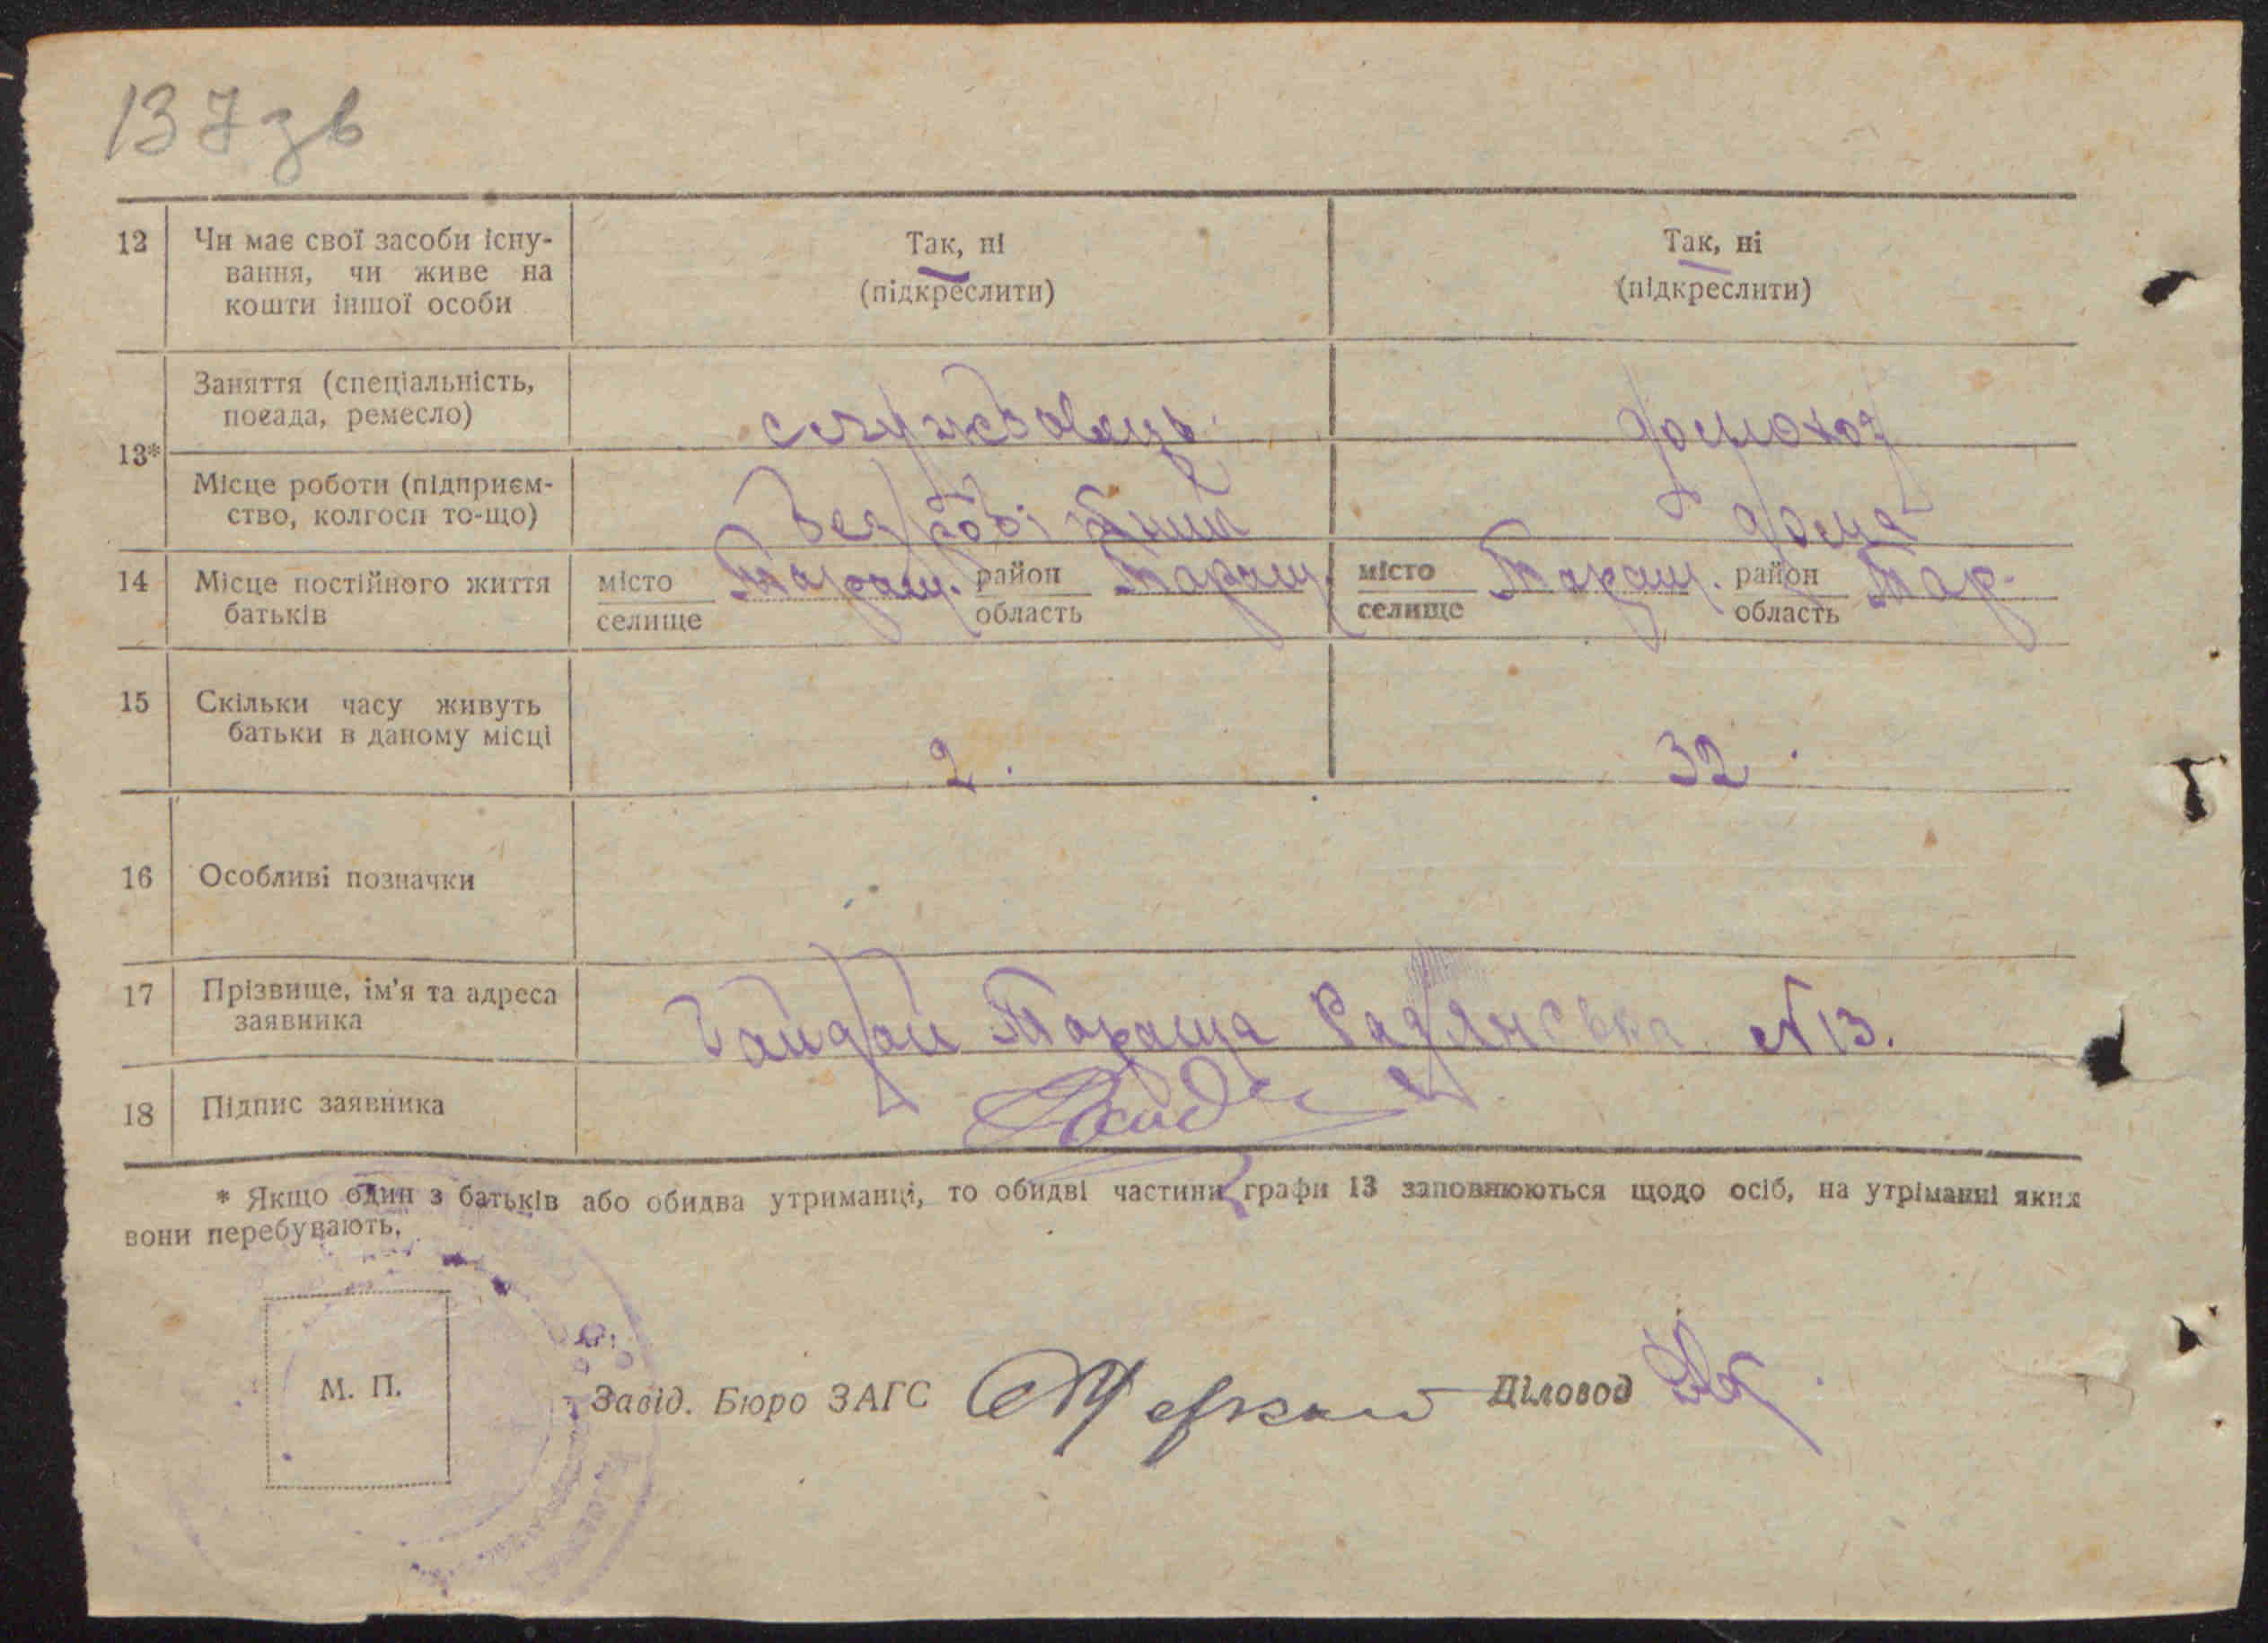 137зв
12 Чи має свої засоби існу-
вання, чи живе на
кошти іншої особи
Так, ні
(підкреслити)
Так, ні
(підкреслити)
13*
Заняття (спеціальність,
посада, ремесло)
службовець
домохоз
Місце роботи (підприєм-
ство, колгосп то-що)
дома
14 Місце постійного життя
батьків
місто
селище
Таращ.
район
область
Таращ
місто
селище
Таращ.
район
область
Тар.
15 Скільки часу живуть
батьки в даному місці
2.
32.
16 Особливі позначки
17 Прізвище, ім'я та адреса
заявника
Гайдай Тараща Радянська №13.
18 Підпис заявника
* Якщо один з батьків або обидва утриманці, то обидві частини графи 13 заповнюються щодо осіб, на утріманні яких
вони перебувають.
М. П.
Завід. Бюро ЗАГС
Діловод